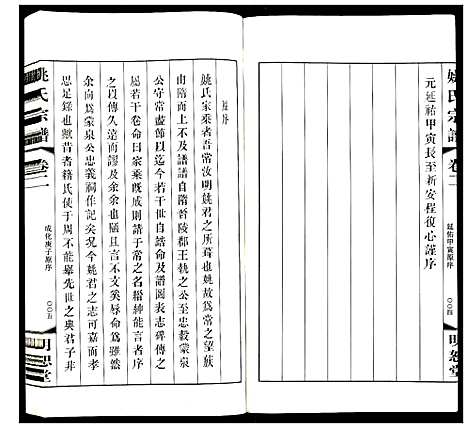 姚氏宗譜 卷二
延佑甲寅原序
〇〇四
明恕堂
元延祐甲寅長至新安程復心謹序
姚氏宗譜 卷二
成化庚子原序
〇〇五
明恕堂
姚序
姚氏家乘者吾常汝明姚君之所裔也姚故爲常之望族
由隋而降莫不及譜譜自隋晉陵郡王執之公忠毅蒙泉
公守常盡節以迄今若干世自誥命及譜圖表志碑傳之
屬若干卷命曰家乘既成則請于常之名縉紳能言者序
之以傳久遠而謬及余余也何人且言不文奚辱命爲雖然
余向爲蒙泉公忠義祠作記矣況今姚君之志可嘉而孝
思足錄也歟昔者籍氏使于周不能舉先世之典君子非